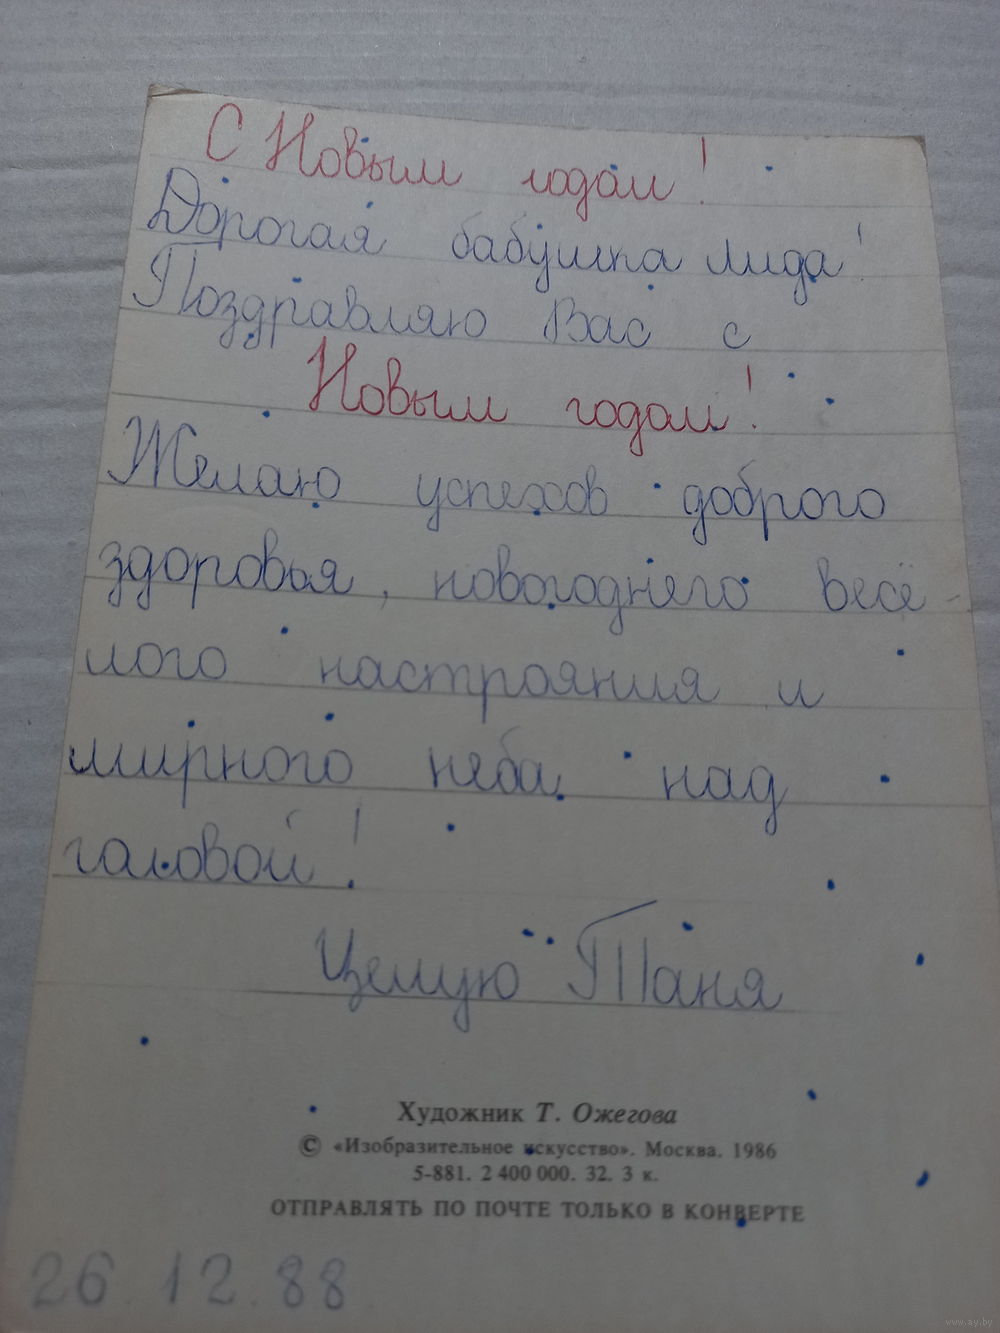 С Новым годом!
Дорогая бабушка Лида!
Поздравляю Вас с
Новым годом!
Желаю успехов доброго
здоровья, новогоднего весё-
лого настрояния и
мирного неба над
галовой!
Целую Таня
Художник Т. Ожегова
© «Изобразительное искусство». Москва. 1986
5-881. 2 400 000. 32. 3 к.
ОТПРАВЛЯТЬ ПО ПОЧТЕ ТОЛЬКО В КОНВЕРТЕ
26.12.88
www.ay.by